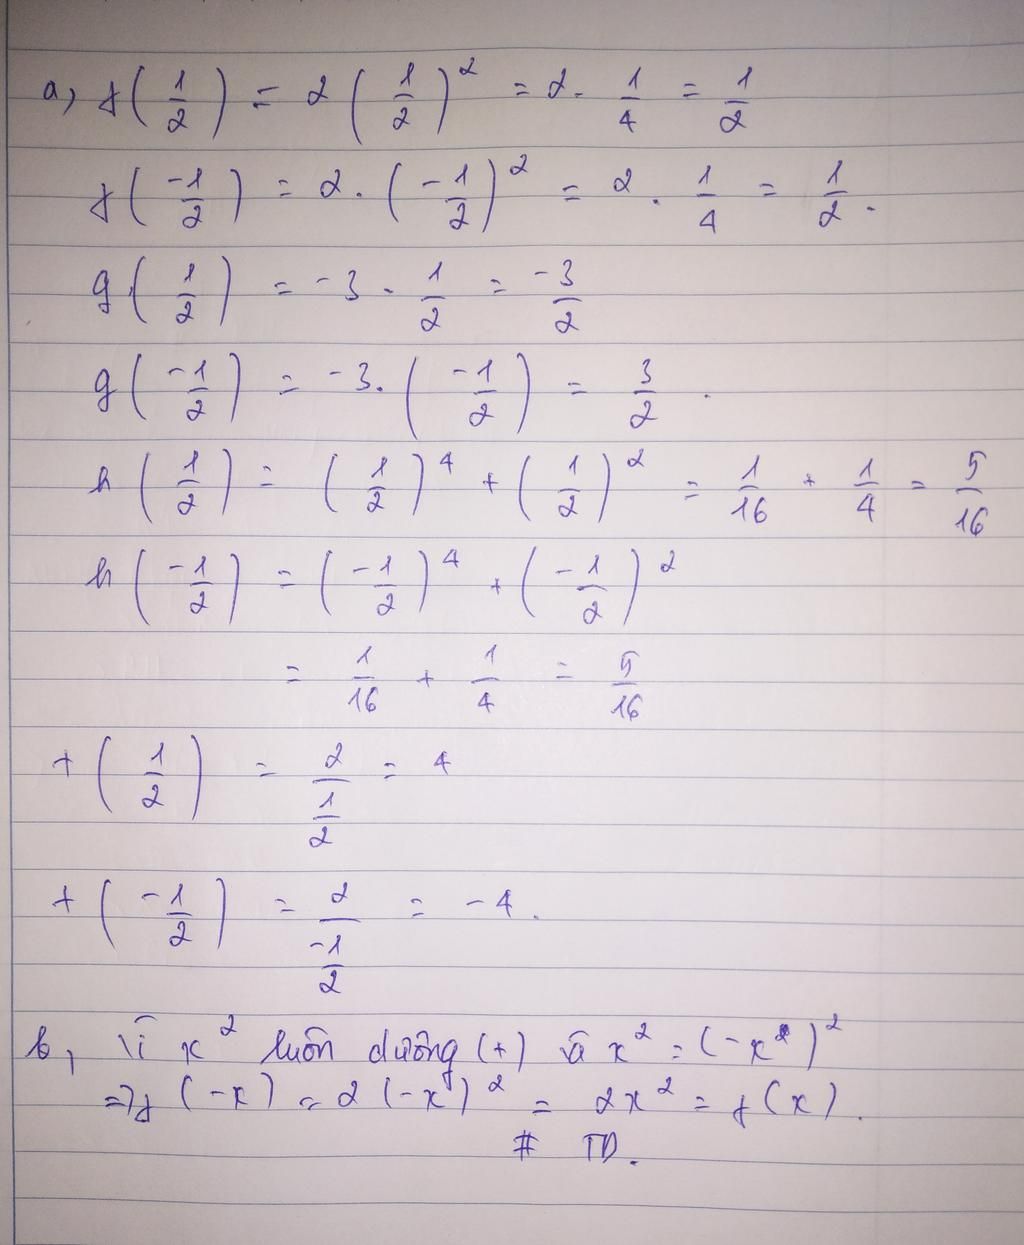 a, f(1/2) = 2(1/2)² = 2. 1/4 = 1/2
f(-1/2) = 2.(-1/2)² = 2 . 1/4 = 1/2.
g(1/2) = -3. 1/2 = -3/2
g(-1/2) = -3.(-1/2) = 3/2.
h(1/2) = (1/2)⁴ + (1/2)² = 1/16 + 1/4 = 5/16
h(-1/2) = (-1/2)⁴ + (-1/2)²
= 1/16 + 1/4 = 5/16
t(1/2) = 2/(1/2) = 4
t(-1/2) = 2/(-1/2) = -4.
b, Vì x² luôn dương (+) và x² = (-x)²
=> f(-x) = 2(-x)² = 2x² = f(x).
# TD.